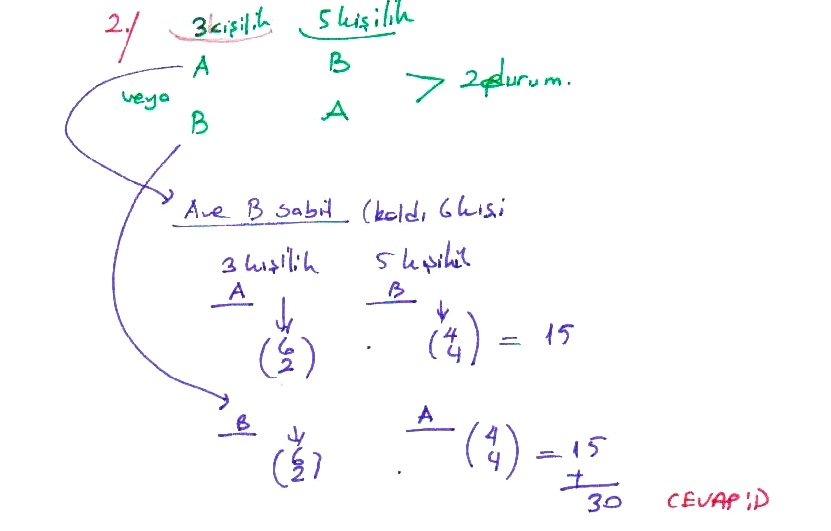 2./ 3kişilik 5kişilik
A B
veya > 2 durum.
B A
A ve B sabit (kaldı 6 kişi
3 kişilik 5 kişilik
A B
(6 2) . (4 4) = 15
B A
(6 2) . (4 4) = 15
+
30 CEVAP: D